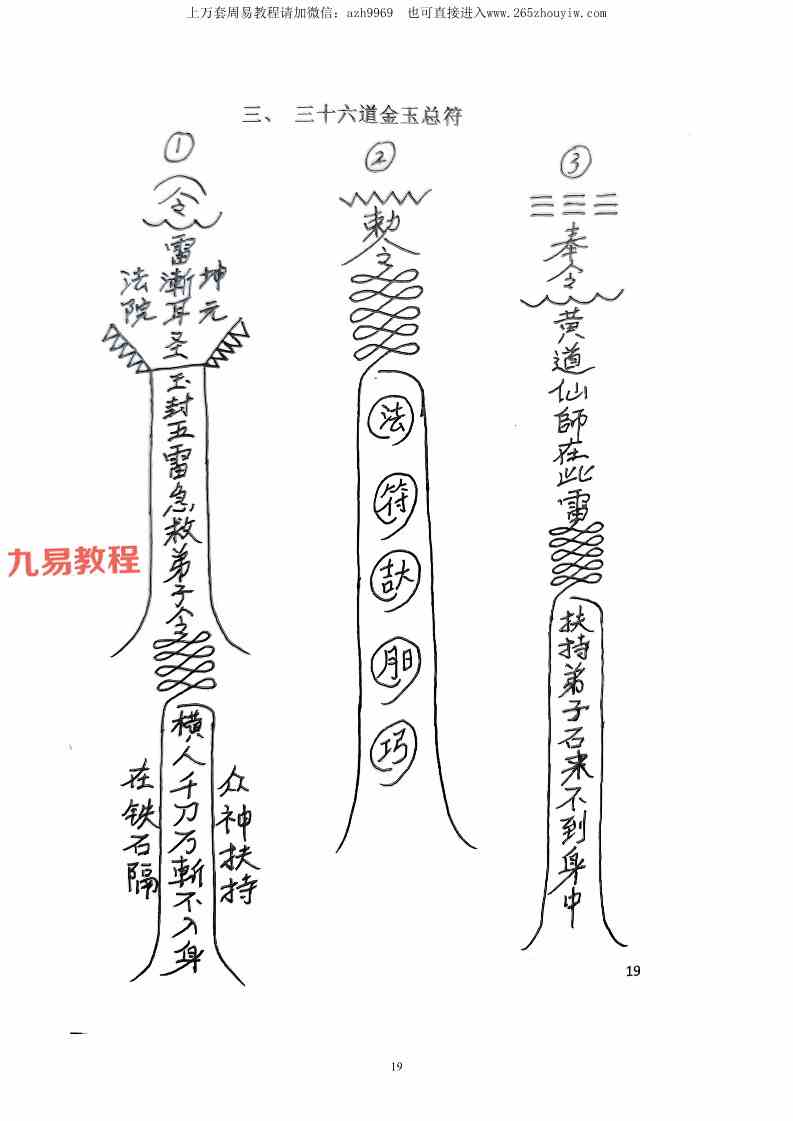 上万套周易教程请加微信：azh9969 也可直接进入www.265zhouyiw.com
三、 三十六道金玉总符
①
令
雷
坤元
渐耳
法院
圣
玉封五雷急救弟子令
横人千刀万斬不入身
众神扶持
在铁石隔
②
勅令
法
符
巧
③
奉令
黄道仙師在此雷
扶持弟子石来不到身中
九易教程
19
19